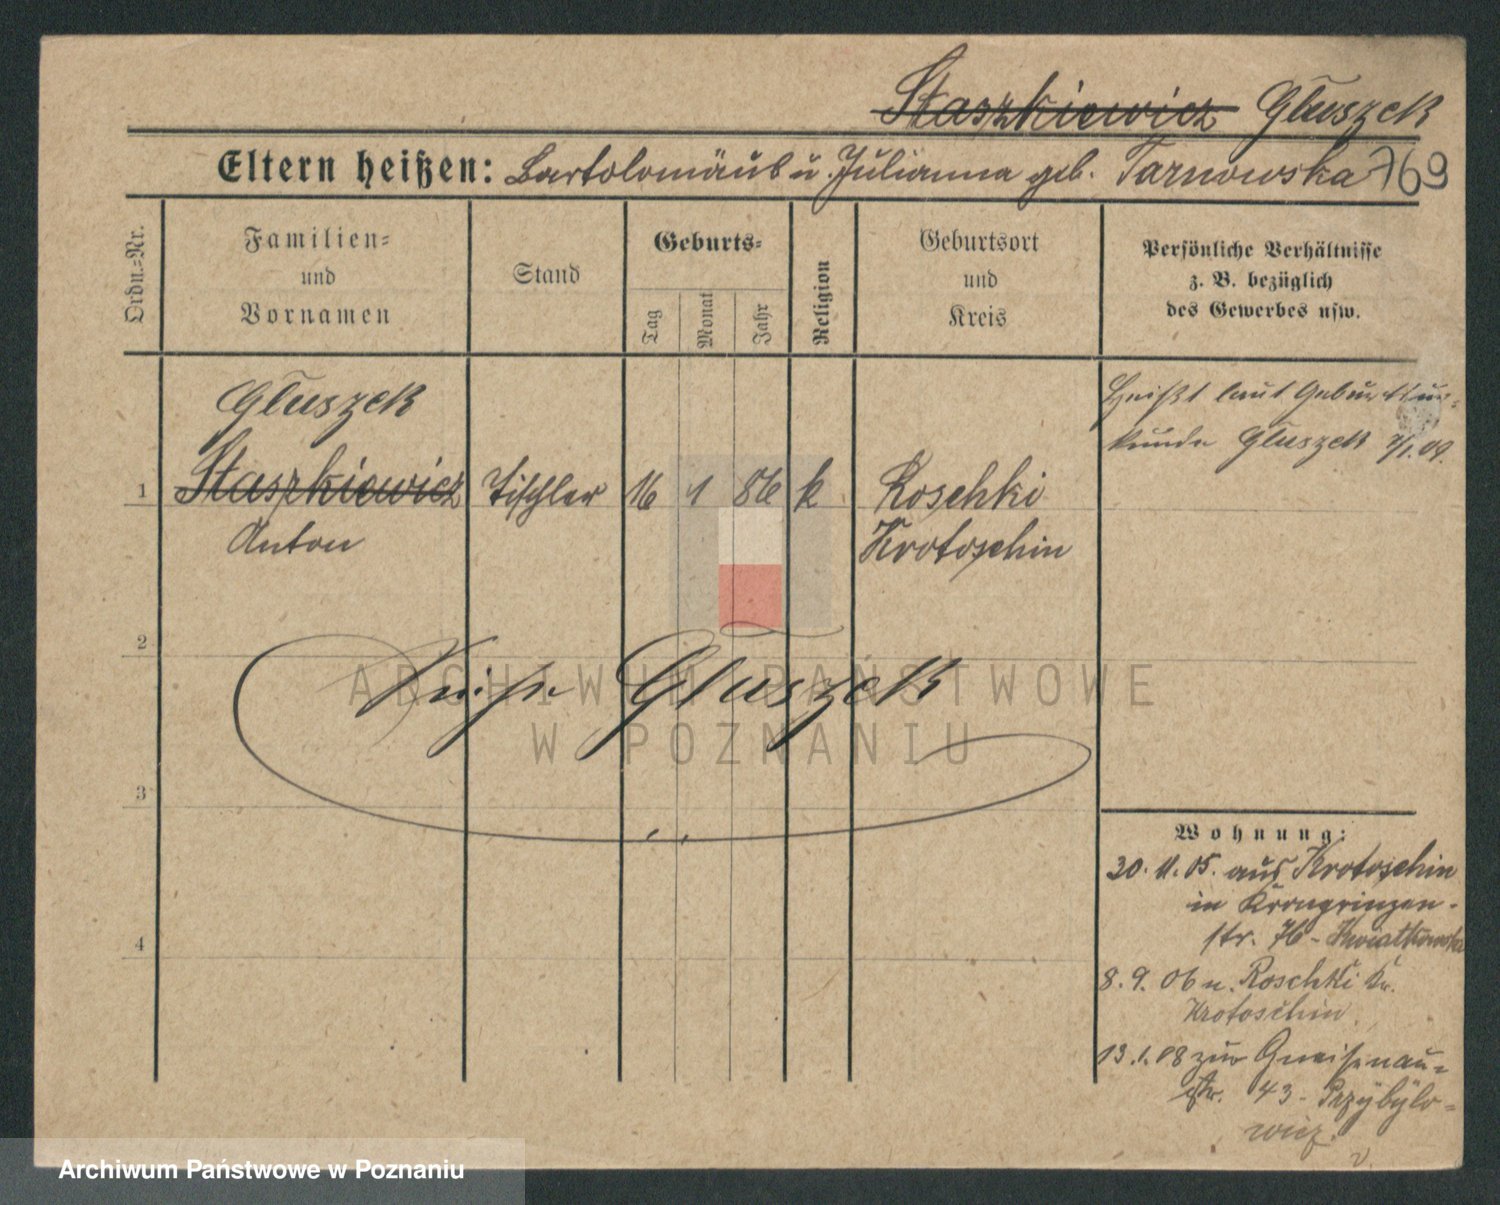 Staszkiewicz Gluszek
Eltern heißen: Bartolomäus u. Julianna geb. Tarnowska 769
Ordn.-Nr.
Familien-
und
Vornamen
Stand
Geburts-
Tag
Monat
Jahr
Religion
Geburtsort
und
Kreis
Persönliche Verhältnisse
z. B. bezüglich
des Gewerbes usw.
Gluszek
1 Staszkiewicz Tischler 16 1 86 k Roschki
Anton Krotoschin
Heißt laut Geburtsur-
kunde Gluszek 7/1.09.
2
Gluszek
ARCHIWUM PAŃSTWOWE
W POZNANIU
3
4
Wohnung:
20. 11. 05. aus Krotoschin
in Kronprinzen-
str. 76 - Kwiatkowska
8. 9. 06 n. Roschki Kr.
Krotoschin
13.1.08 zur Gneisenau-
str. 43 - Przybylo-
wicz.
v.
Archiwum Państwowe w Poznaniu